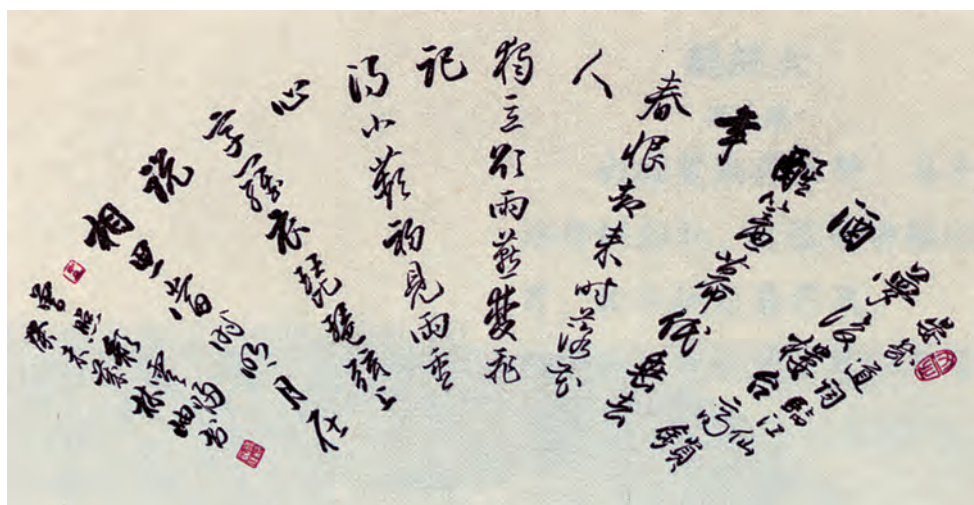 晏幾道词臨江仙
夢後樓台高鎖
酒
醒簾幕低垂去
年
春恨却来时落花
人
獨立微雨燕雙飛
記
得小蘋初見兩重
心
字羅衣琵琶弦上
说
相思当时明月在
曾照彩雲归
癸未林岫书